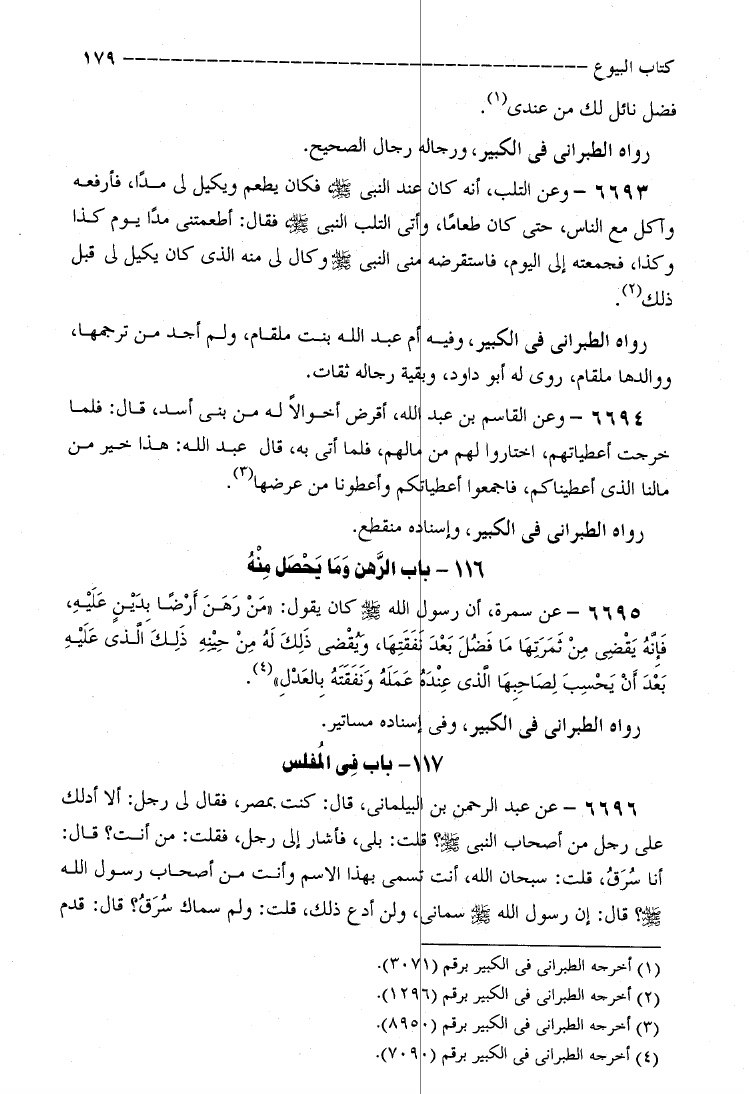 كتاب البيوع ------------------------------------------- ١٧٩
فضل نائل لك من عندى(١).
رواه الطبرانى فى الكبير، ورجاله رجال الصحيح.
٦٦٩٣ – وعن التلب، أنه كان عند النبى ﷺ فكان يطعم ويكيل لى مـدًا، فأرفعـه
وآكل مع الناس، حتى كان طعامًا، وأتى التلب النبى ﷺ فقال: أطعمتنى مدًا يـوم كـذا
وكذا، فجمعته إلى اليوم، فاستقرضه منى النبى ﷺ وكال لى منه الذى كان يكيل لى قبل
ذلك(٢).
رواه الطبرانى فى الكبير، وفيـه أم عبـد اللـه بنـت ملقـام، ولـم أجـد مـن ترجمهـا،
ووالدها ملقام، روى له أبو داود، وبقية رجاله ثقات.
٦٦٩٤ – وعن القاسم بن عبد الله، أقرض أخـوالاً لـه مـن بنـى أسـد، قـال: فلمـا
خرجت أعطياتهم، اختاروا لهم من مالهم، فلما أتى به، قال عبـد اللـه: هـذا خيـر مـن
مالنا الذى أعطيناكم، فاجمعوا أعطياتكم وأعطونا من عرضها(٣).
رواه الطبرانى فى الكبير، وإسناده منقطع.
١١٦ – باب الرَّهن وَمَا يَحْصَل مِنْهُ
٦٦٩٥ – عن سمرة، أن رسول الله ﷺ كان يقول: «مَنْ رَهَـنَ أَرْضًـا بِدَيْـنٍ عَلَيْـهِ،
فَإِنَّهُ يَقْضِى مِنْ ثَمَرَتِهَا مَا فَضُلَ بَعْدَ نَفَقَتِهَا، وَيُقْضَى ذَلِكَ لَهُ مِنْ حِيْنِهِ ذَلِـكَ الَّـذى عَلَيْـهِ
بَعْدَ أَنْ يَحْسِبَ لِصَاحِبِهَا الَّذى عِنْدَهُ عَمَلَهُ وَنَفَقَتَهُ بِالعَدْلِ»(٤).
رواه الطبرانى فى الكبير، وفى إسناده مساتير.
١١٧– باب فِى المُفلس
٦٦٩٦ – عن عبد الرحمن بن البيلمانى، قال: كنت بمصر، فقال لى رجل: ألا أدلك
على رجل من أصحاب النبى ﷺ؟ قلت: بلى، فأشار إلى رجل، فقلت: من أنـت؟ قـال:
أنا سُرَقُ، قلت: سبحان الله، أنت تسمى بهذا الاسم وأنـت مـن أصحـاب رسـول اللـه
ﷺ؟ قال: إن رسول الله ﷺ سمانى، ولن أدع ذلك، قلت: ولم سماك سُرَقُ؟ قال: قدم
(١) أخرجه الطبرانى فى الكبير برقم (٣٠٧١).
(٢) أخرجه الطبرانى فى الكبير برقم (١٢٩٦).
(٣) أخرجه الطبرانى فى الكبير برقم (٨٩٥٠).
(٤) أخرجه الطبرانى فى الكبير برقم (٧٠٩٠).